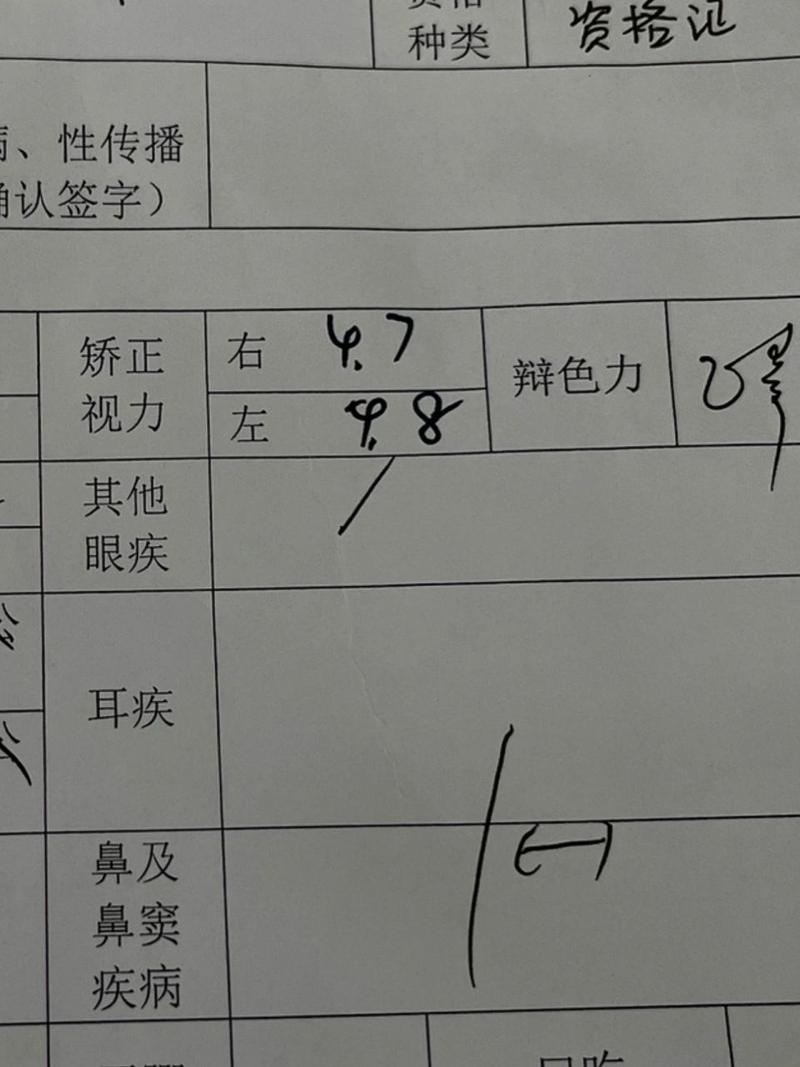 种类 资格证
、性传播
认签字）
矫正
视力
右 4.7
左 4.8
辩色力
其他
眼疾 /
耳疾
鼻及
鼻窦
疾病
(一)